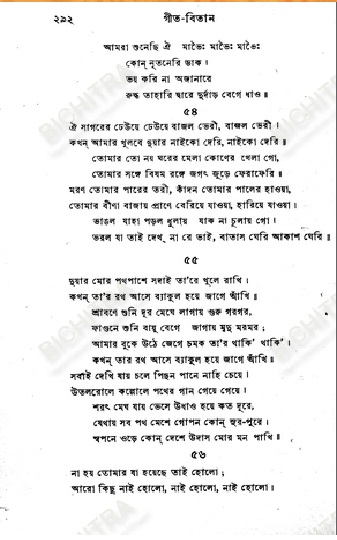 ২৯২ গীত-বিতান
আমরা শুনেছি ঐ মাভৈঃ মাভৈঃ মাভৈঃ
কোন্ নূতনেরি ডাক।
ভয় করি না অজানারে
রুদ্ধ তাহারি দ্বারে দুর্দ্দাড় বেগে ধাও॥
৫৪
ঐ সাগরের ঢেউয়ে ঢেউয়ে বাজল ভেরী, বাজল ভেরী।
কখন্ আমার খুলবে দুয়ার নাইকো দেরি, নাইকো দেরি॥
তোমার তো নয় ঘরের মেলা কোণের খেলা গো,
তোমার সঙ্গে বিষম রঙ্গে জগৎ জুড়ে ফেরাফেরি॥
মরণ তোমার পারের তরী, কাঁদন তোমার পালের হাওয়া,
তোমার বীণা বাজায় প্রাণে বেরিয়ে যাওয়া, হারিয়ে যাওয়া।
ভাঙল যাহা পড়ল ধূলায় যাক্ না চুলায় গো।
ভরল যা তাই দেখ্ না রে ভাই, বাতাস ঘেরি আকাশ ঘেরি॥
৫৫
দুয়ার মোর পথপাশে সদাই তা'রে খুলে রাখি।
কখন্ তা'র রথ আসে ব্যাকুল হয়ে জাগে আঁখি॥
শ্রাবণে শুনি দূর মেঘে লাগায় গুরু গরগর,
ফাগুনে শুনি বায়ু বেগে জাগায় মৃদু মরমর;
আমার বুকে উঠে জেগে চমক তা'র থাকি' থাকি'।
কখন্ তার রথ আসে ব্যাকুল হয়ে জাগে আঁখি॥
সবাই দেখি যায় চলে পিছন পানে নাহি চেয়ে।
উতলরোলে কল্লোলে পথের গান গেয়ে গেয়ে।
শরৎ মেঘ যায় ভেসে উধাও হয়ে কত দূরে,
যেথায় সব পথ মেশে গোপন কোন্ সুর-পুরে।
স্বপনে ওড়ে কোন্ দেশে উদাস মোর মন পাখি॥
৫৬
না হয় তোমার যা হয়েছে তাই হোলো;
আরো কিছু নাই হোলো, নাই হোলো, নাই হোলো॥
BICHITRA